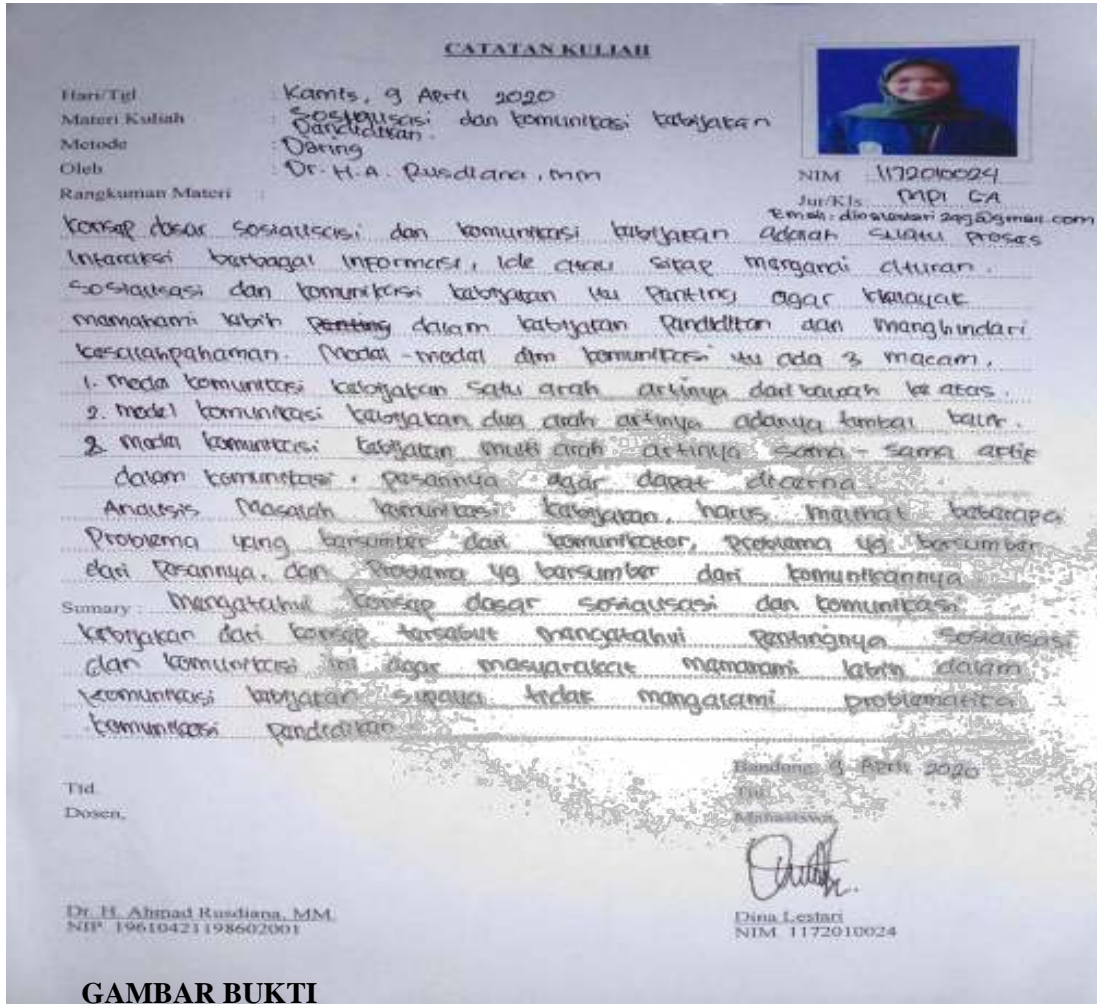 CATATAN KULIAH
Hari/Tgl : Kamis, 9 April 2020
Materi Kuliah : Sosialisasi dan komunikasi kebijakan
Pendidikan.
Metode : Daring
Oleh : Dr. H. A. Rusdiana, mm
NIM 1172010024
Rangkuman Materi :
Jur/Kls MPI 6A
Email: dinalestari299@gmail.com
konsep dasar sosialisasi dan komunikasi kebijakan adalah suatu proses
Interaksi berbagai informasi, ide atau sikap mengenai aturan.
Sosialisasi dan komunikasi kebijakan itu penting agar khalayak
memahami lebih penting dalam kebijakan pendidikan dan menghindari
kesalahpahaman. Model-model dlm komunikasi itu ada 3 macam.
1. model komunikasi kebijakan satu arah artinya dari bawah ke atas.
2. model komunikasi kebijakan dua arah artinya adanya timbal balik.
3. model komunikasi kebijakan multi arah artinya sama-sama aktif
dalam komunikasi. pesannya agar dapat dicerna
Analisis Masalah komunikasi kebijakan, harus melihat beberapa
Problema yang bersumber dari komunikator, problema yg bersumber
dari pesannya, dan Problema yg bersumber dari komunikannya
Sumary : Mengetahui konsep dasar sosialisasi dan komunikasi
kebijakan dari konsep tersebut mengetahui pentingnya sosialisasi
dan komunikasi ini agar masyarakat memahami lebih dalam
komunikasi kebijakan supaya tidak mengalami problematika
komunikasi pendidikan
Bandung, 9 April 2020
Ttd. Ttd.
Dosen, Mahasiswa,
Dr. H. Ahmad Rusdiana, MM. Dina Lestari
NIP. 19610421198602001 NIM. 1172010024
GAMBAR BUKTI